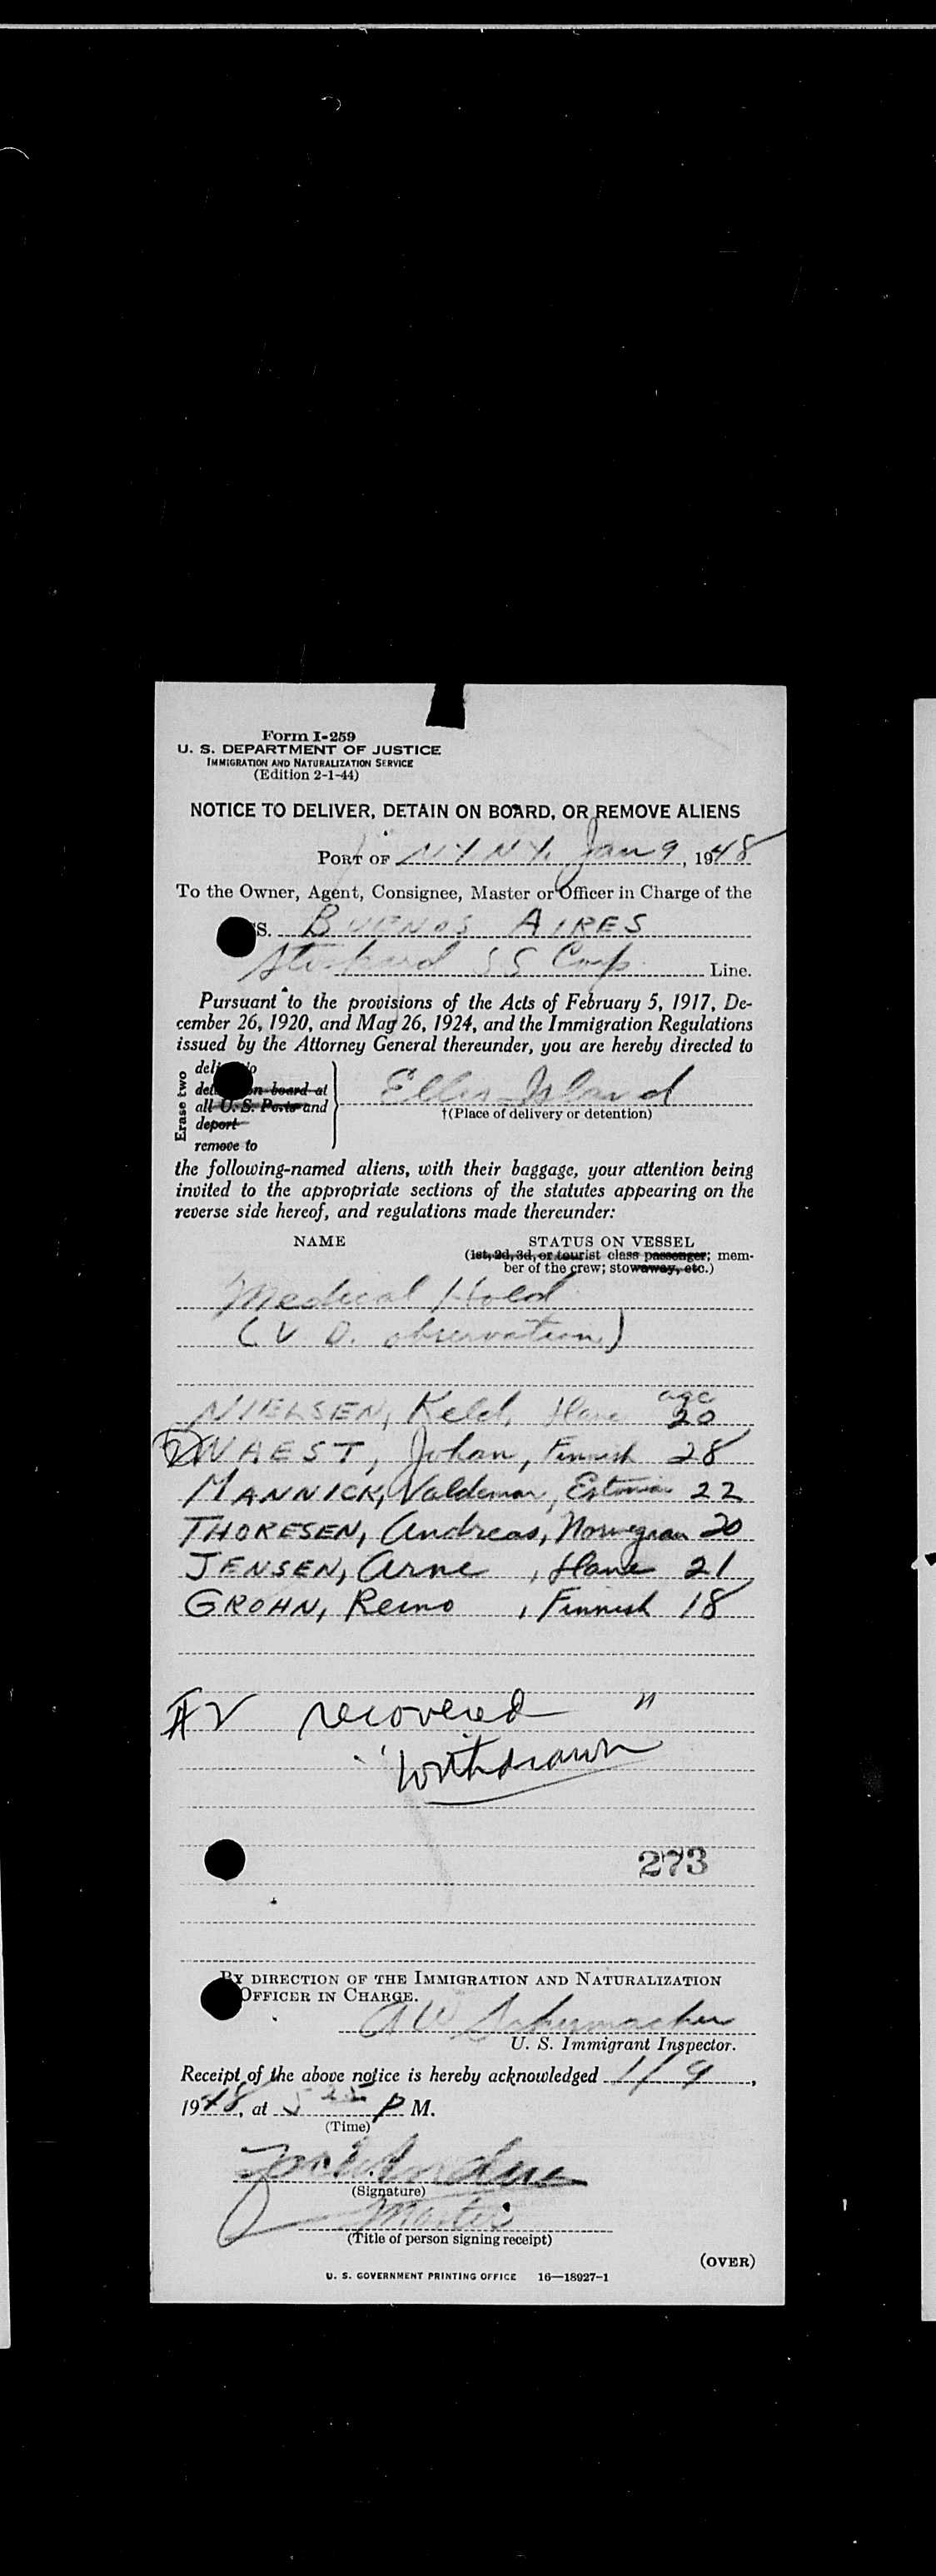 Form I-259
U. S. DEPARTMENT OF JUSTICE
IMMIGRATION AND NATURALIZATION SERVICE
(Edition 2-1-44)
NOTICE TO DELIVER, DETAIN ON BOARD, OR REMOVE ALIENS
PORT OF N.Y. N.Y. Jan 9, 1948
To the Owner, Agent, Consignee, Master or Officer in Charge of the
S. BUENOS AIRES
SS Corp. Line.
Pursuant to the provisions of the Acts of February 5, 1917, De-
cember 26, 1920, and May 26, 1924, and the Immigration Regulations
issued by the Attorney General thereunder, you are hereby directed to
Erase two
on board at
all U. S. Ports and
deport
remove to
Ellis Island
†(Place of delivery or detention)
the following-named aliens, with their baggage, your attention being
invited to the appropriate sections of the statutes appearing on the
reverse side hereof, and regulations made thereunder:
NAME STATUS ON VESSEL
(1st, 2d, 3d, or tourist class passenger; mem-
ber of the crew; stowaway, etc.)
Medical Hold
(V. D. observation)
age
NIELSEN, Keld, Dane 20
2 WAEST, Johan, Finnish 28
MANNICK, Valdemar, Estonian 22
THORESEN, Andreas, Norwegian 20
JENSEN, Arne, Dane 21
GROHN, Reino, Finnish 18
#2 recovered "
"withdrawn
273
BY DIRECTION OF THE IMMIGRATION AND NATURALIZATION
OFFICER IN CHARGE.
A W Schumacher
U. S. Immigrant Inspector.
Receipt of the above notice is hereby acknowledged 1/9,
1948, at 5 25 P M.
(Time)
(Signature)
Master
(Title of person signing receipt)
(OVER)
U. S. GOVERNMENT PRINTING OFFICE 16—18927-1